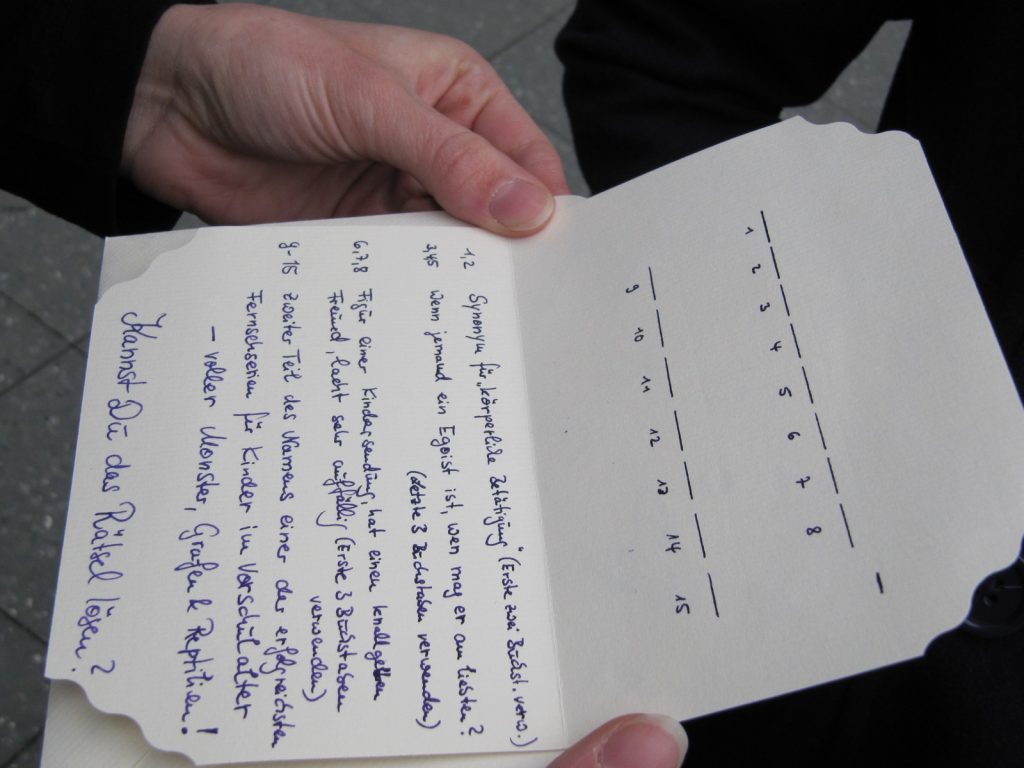 1,2 Synonym für „körperliche Betätigung" (Erste zwei Buchst. verw.)
3,4,5 Wenn jemand ein Egoist ist, wen mag er am liebsten?
(Letzte 3 Buchstaben verwenden)
6,7,8 Figur einer Kindersendung, hat einen knallgelben
Freund, lacht sehr auffällig (Erste 3 Buchstaben
verwenden)
9-15 Zweiter Teil des Namens einer der erfolgreichsten
Fernsehserien für Kinder im Vorschulalter
– voller Monster, Grafen & Reptilien!
Kannst Du das Rätsel lösen?
1 2 3 4 5 6 7 8 –
9 10 11 12 13 14 15